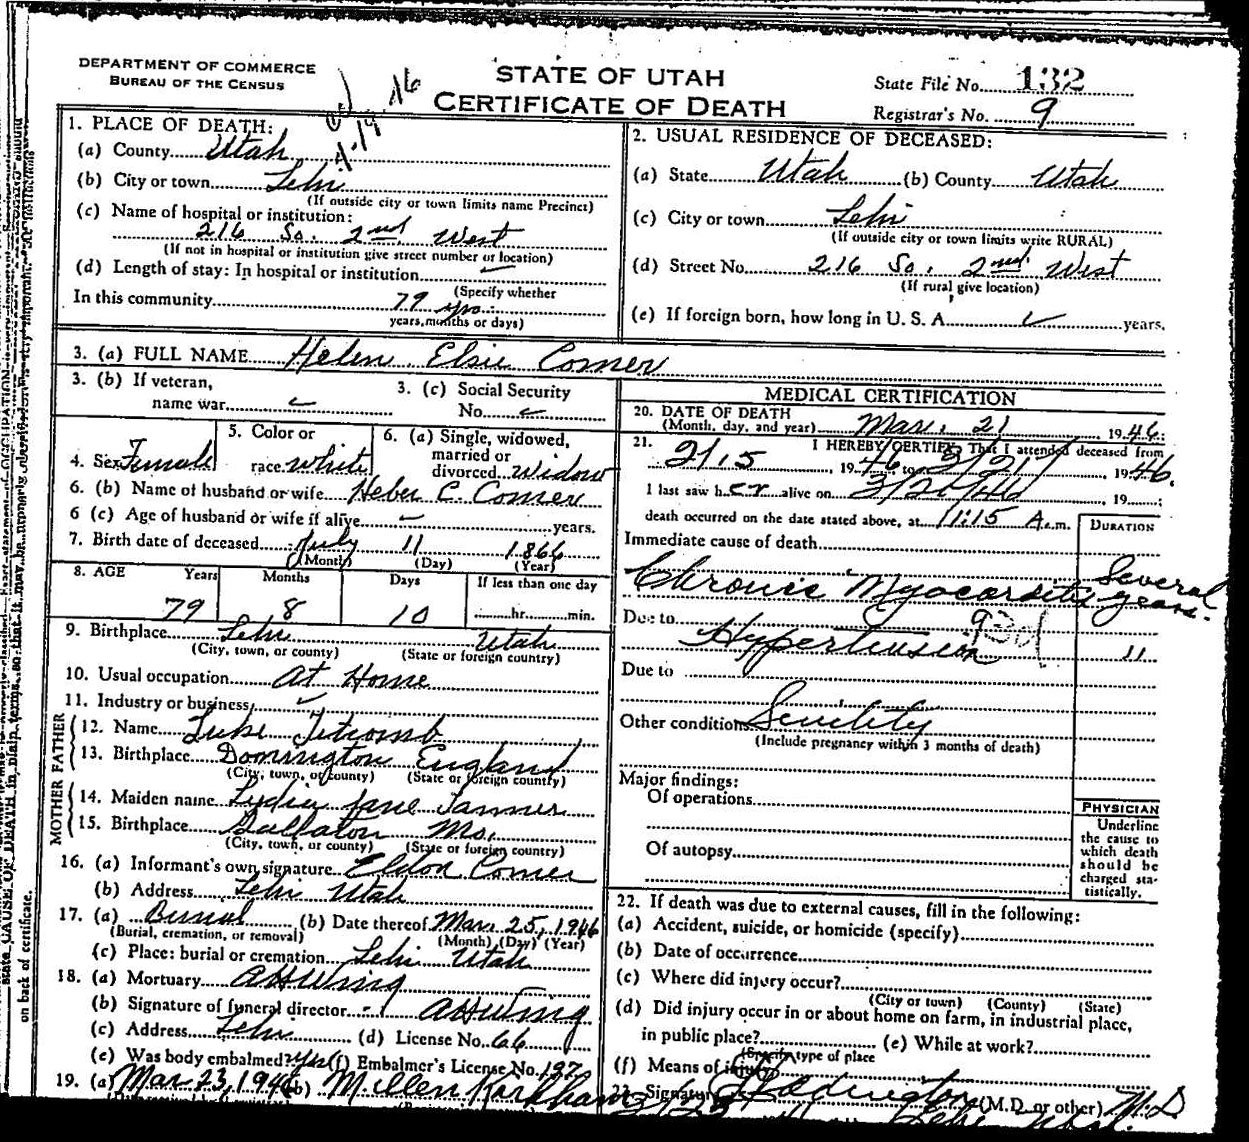 DEPARTMENT OF COMMERCE
BUREAU OF THE CENSUS
STATE OF UTAH
CERTIFICATE OF DEATH
State File No. 132
Registrar's No. 9
1. PLACE OF DEATH:
(a) County Utah
(b) City or town Lehi
(If outside city or town limits name Precinct)
(c) Name of hospital or institution:
216 So. 2nd West
(If not in hospital or institution give street number or location)
(d) Length of stay: In hospital or institution
(Specify whether
In this community 79 yrs.
years, months or days)
2. USUAL RESIDENCE OF DECEASED:
(a) State Utah (b) County Utah
(c) City or town Lehi
(If outside city or town limits write RURAL)
(d) Street No. 216 So. 2nd West
(If rural give location)
(e) If foreign born, how long in U. S. A. years.
3. (a) FULL NAME Helen Elsie Comer
3. (b) If veteran,
name war
3. (c) Social Security
No.
4. Sex Female
5. Color or
race White
6. (a) Single, widowed,
married or
divorced Widow
6. (b) Name of husband or wife Heber C. Comer
6 (c) Age of husband or wife if alive years.
7. Birth date of deceased July 11 1866
(Month) (Day) (Year)
8. AGE Years Months Days If less than one day
79 8 10 hr. min.
9. Birthplace Lehi Utah
(City, town, or county) (State or foreign country)
10. Usual occupation At Home
11. Industry or business
FATHER
12. Name Luke Titcomb
13. Birthplace Donnington England
(City, town, or county) (State or foreign country)
MOTHER
14. Maiden name Lydia Jane Tanner
15. Birthplace Gallaton Mo.
(City, town, or county) (State or foreign country)
16. (a) Informant's own signature Eldon Comer
(b) Address Lehi Utah
17. (a) Burial (b) Date thereof Mar. 25, 1946
(Burial, cremation, or removal) (Month) (Day) (Year)
(c) Place: burial or cremation Lehi Utah
18. (a) Mortuary A H Wing
(b) Signature of funeral director A H Wing
(c) Address Lehi (d) License No. 66
(e) Was body embalmed? Yes (f) Embalmer's License No.
19. (a) Mar 23, 1946 (b)
MEDICAL CERTIFICATION
20. DATE OF DEATH
(Month, day, and year) Mar. 21 1946
21. I HEREBY CERTIFY, That I attended deceased from
1946 to 3/21/ 1946.
I last saw her alive on 3/20/46 19
death occurred on the date stated above, at 11:15 A.m.
DURATION
Immediate cause of death
Chronic Myocarditis Several years.
Due to 93d
Hypertension 11
Due to
Other conditions Senility
(Include pregnancy within 3 months of death)
Major findings:
Of operations
Of autopsy
PHYSICIAN
Underline
the cause to
which death
should be
charged sta-
tistically.
22. If death was due to external causes, fill in the following:
(a) Accident, suicide, or homicide (specify)
(b) Date of occurrence
(c) Where did injury occur?
(City or town) (County) (State)
(d) Did injury occur in or about home on farm, in industrial place,
in public place? (e) While at work?
(Specify type of place
(f) Means of injury
23. Signature Eddington (M.D. or other) M.D.
on back of certificate.